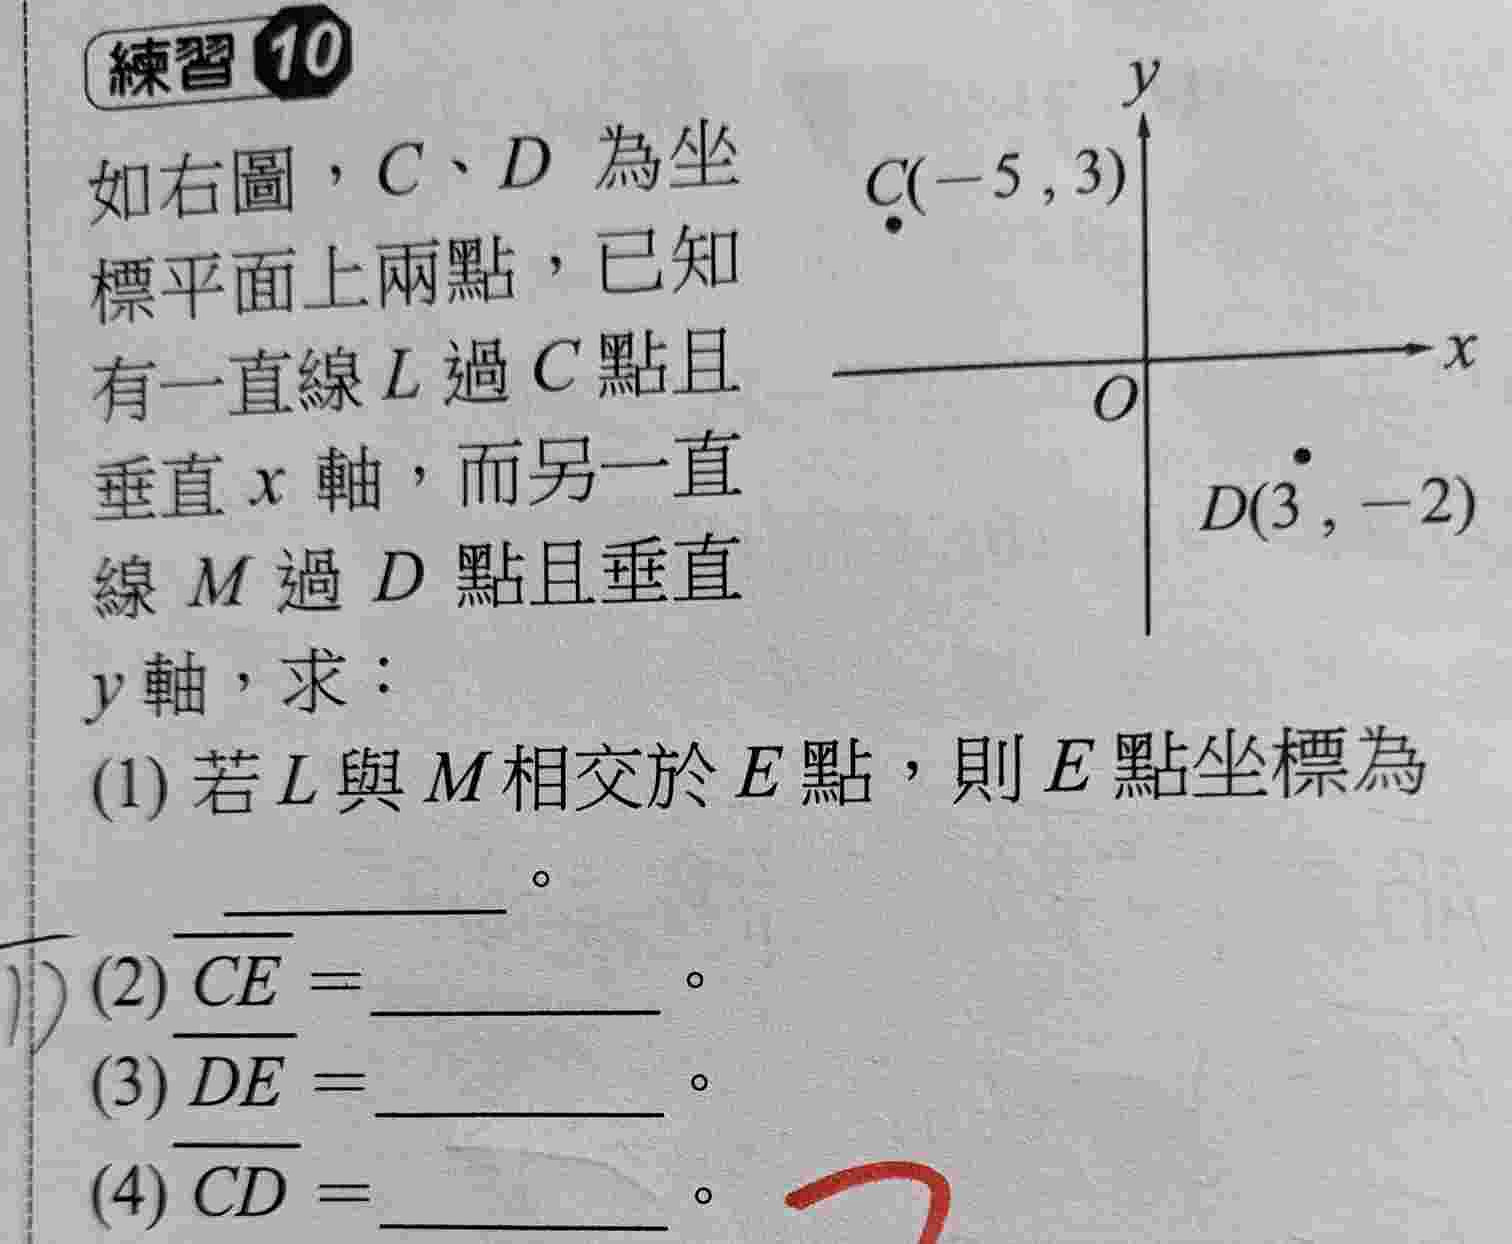 練習 10
如右圖，C、D 為坐
標平面上兩點，已知
有一直線 L 過 C 點且
垂直 x 軸，而另一直
線 M 過 D 點且垂直
y 軸，求：
y
C(−5 , 3)
x
O
D(3 , −2)
(1) 若 L 與 M 相交於 E 點，則 E 點坐標為
________。
(2) C̅E̅ =________。
(3) D̅E̅ =________。
(4) C̅D̅ =________。